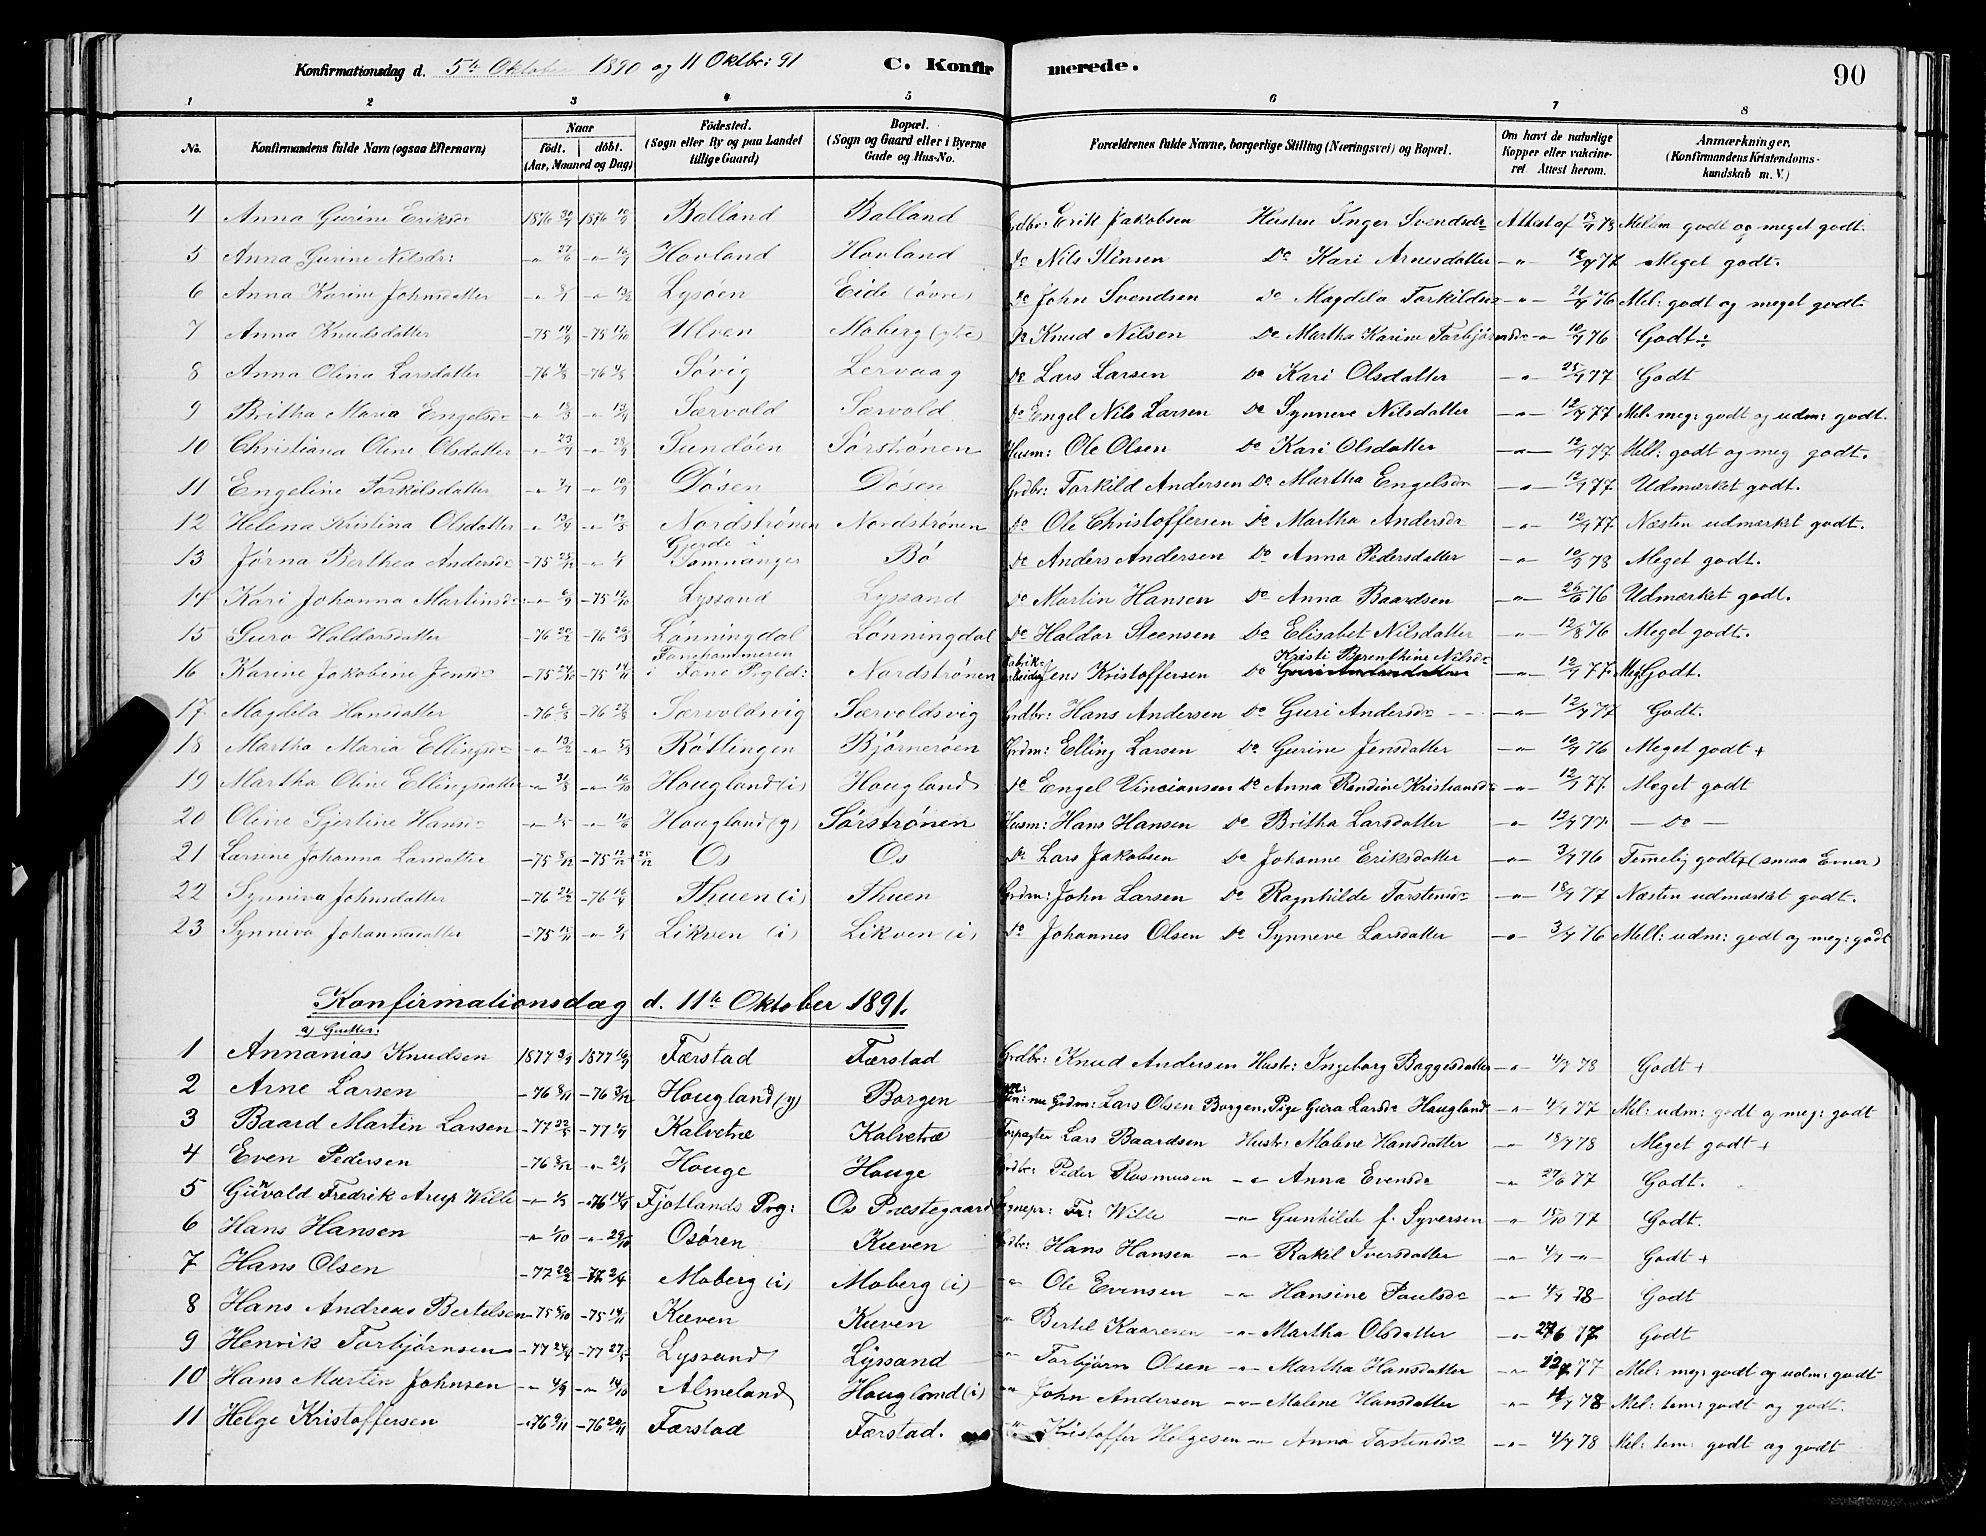 Konfirmationsdag d. 5te Oktober 1890 og 11 Oktbr: 91 C. Konfirmerede. 90
1 2 3 4 5 6 7 8
No. Konfirmandens fulde Navn (ogsaa Efternavn) Naar født. døbt. (Aar, Maaned og Dag) Fødested. (Sogn eller By og paa Landet tillige Gaard) Bopæl. (Sogn og Gaard eller i Byerne Gade og Hus-No. Forældrenes fulde Navne, borgerlige Stilling (Næringsvei) og Bopæl. Om havt de naturlige Kopper eller vakcineret Attest herom. Anmærkninger. (Konfirmandens Kristendomskundskab m. V.)
4 Anna Gurine Eriksdr 1876 1876 Balland Balland Grdbr: Erik Jakobsen Hustru Inger Svendsdr Attest af 78 Mellem godt og meget godt.
5 Anna Gurine Nilsdr: Hovland Hovland Do Nils Stensen Do Kari Arnesdatter -"- 77 Meget godt.
6 Anna Karine Johnsdatter Lysøen Eide (øvre) Do John Svendsen Do Magdela Torkildsdr -"- 76 Mel: godt og meget godt
7 Anna Knudsdatter -75 -75 Ulven Moberg (ytre) Do Knud Nilsen Do Martha Karine Torbjørnsdr -"- 76 Godt
8 Anna Olina Larsdatter -76 -76 Søvig Lervaag Do Lars Larsen Do Kari Olsdatter -"- 77 Godt
9 Britha Maria Engelsdr Særvold Særvold Do Engel Nils Larsen Do Synneve Nilsdatter -"- 12/7 77 Mel. meg: godt og udm: godt.
10 Christiana Oline Olsdatter Sundøen Sørstrønen Husm: Ole Olsen Do Kari Olsdatter -"- 12/7 77 Mell: godt og meg godt.
11 Engeline Torkilsdatter Døsen Døsen Grdbr: Torkild Andersen Do Martha Engelsdr -"- 12/7 77 Udmærket godt.
12 Helena Kristina Olsdatter Nordstrønen Nordstrønen Do Ole Christoffersen Do Martha Andersdr -"- 12/7 77 Næsten udmærket godt.
13 Jørna Berthea Andersdr -75 Gjerde i Samnanger Bø Do Anders Andersen Do Anna Pedersdatter -"- 78 Meget godt.
14 Kari Johanna Martinsdr -75 Lyssand Lyssand Do Martin Hansen Do Anna Baardsen -"- 26/6 76 Udmærket godt.
15 Guro Haldorsdatter -76 -76 Lønningdal Lønningdal Do Haldor Steensen Do Elisabet Nilsdatter -"- 12/8 76 Meget godt.
16 Karine Jakobine Jensdr -75 -75 Fanehammeren i Fane Prgld: Nordstrønen Fabrikarbeider Jens Kristoffersen Do Kristi Berenthine Nilsdr -"- 12/7 77 Meg: Godt.
17 Magdela Hansdatter -76 -76 Særvoldsvig Særvoldsvig Grdbr: Hans Andersen Do Guri Andersdr -"- 12/7 77 Godt.
18 Martha Maria Ellingsdr Røttingen Bjørnerøen Grdm: Elling Larsen Do Gurine Jensdatter -"- 76 Meget godt +
19 Martha Oline Ellingsdatter Hougland (i) Hougland Do Engel Vinciansen Do Anna Randine Kristiansdr -"- 12/7 77 Meget godt
20 Oline Gjertine Hansdr Hougland (y) Sørstrønen Husm: Hans Hansen Do Britha Larsdatter -"- 12/7 77 -Do-
21 Larsine Johanna Larsdatter -75 -75 Os Os Do Lars Jakobsen Do Johanne Eriksdatter -"- 3/7 76 Temmelig godt + (smaa Evner)
22 Synneva Johnsdatter -76 -76 Thuen (i) Thuen Grdm: John Larsen Do Ragnhilde Torstensdr -"- 18/7 77 Næsten udmærket godt.
23 Synneva Johannesdatter -75 Likven (i) Likven (i) Do Johannes Olsen Do Synneve Larsdatter -"- 3/7 76 Mell: udm: godt og meg: godt
Konfirmationsdag d. 11te Oktober 1891.
a) Gutter:
1 Annanias Knudsen 1877 1877 Færstad Færstad Grdbr: Knud Andersen Hustr: Ingeborg Baggesdatter -"- 4/7 78 Godt +
2 Arne Larsen -76 8/11 -76 3/12 Hougland (y) Borgen Grdm: Lars Olsen Borgen, Pige Guro Larsdr Haugland -"- 4/7 77 Mel: udm: godt og meg: godt
3 Baard Martin Larsen -77 -77 Kalvetræ Kalvetræ Forpagter Lars Baardsen Hustr: Malene Hansdatter -"- 18/7 78 Meget godt +
4 Even Pedersen -76 Houge Houge Grdbr: Peder Rasmusen -"- Anna Evensdr -"- 27/6 77 Godt.
5 Gunvald Fredrik Arup Wille -76 Fjotlands Prg: Os Præstegaard Sognepr: Fr: Wille -"- Gunhilde f. Syversen -"- 15/10 77 Godt.
6 Hans Hansen Osøren Kuven Grdbr: Hans Hansen -"- Rakil Iversdatter -"- 4/7 -"- Godt +
7 Hans Olsen -77 -77 Moberg (i) Moberg (i) -"- Ole Evensen -"- Hansine Paulsdr -"- 4/7 78 Godt
8 Hans Andreas Bertelsen -75 -75 Kuven Kuven -"- Bertel Kaaresen -"- Martha Olsdatter -"- 27/6 77 Godt
9 Henrik Torbjørnsen -77 -77 Lyssand Lyssand -"- Torbjørn Olsen -"- Martha Hansdatter -"- 12/7 77 Mel: meg: godt og udm: godt
10 Hans Martin Johnsen Almeland Hougland (i) -"- John Andersen -"- Malene Hansdatter -"- 4/7 78 Mel: tem: godt og godt.
11 Helge Kristoffersen -76 9/11 -76 Færstad Færstad. -"- Kristoffer Helgesen -"- Anna Torstensdr -"- 4/7 78 Mel: tem: godt og godt